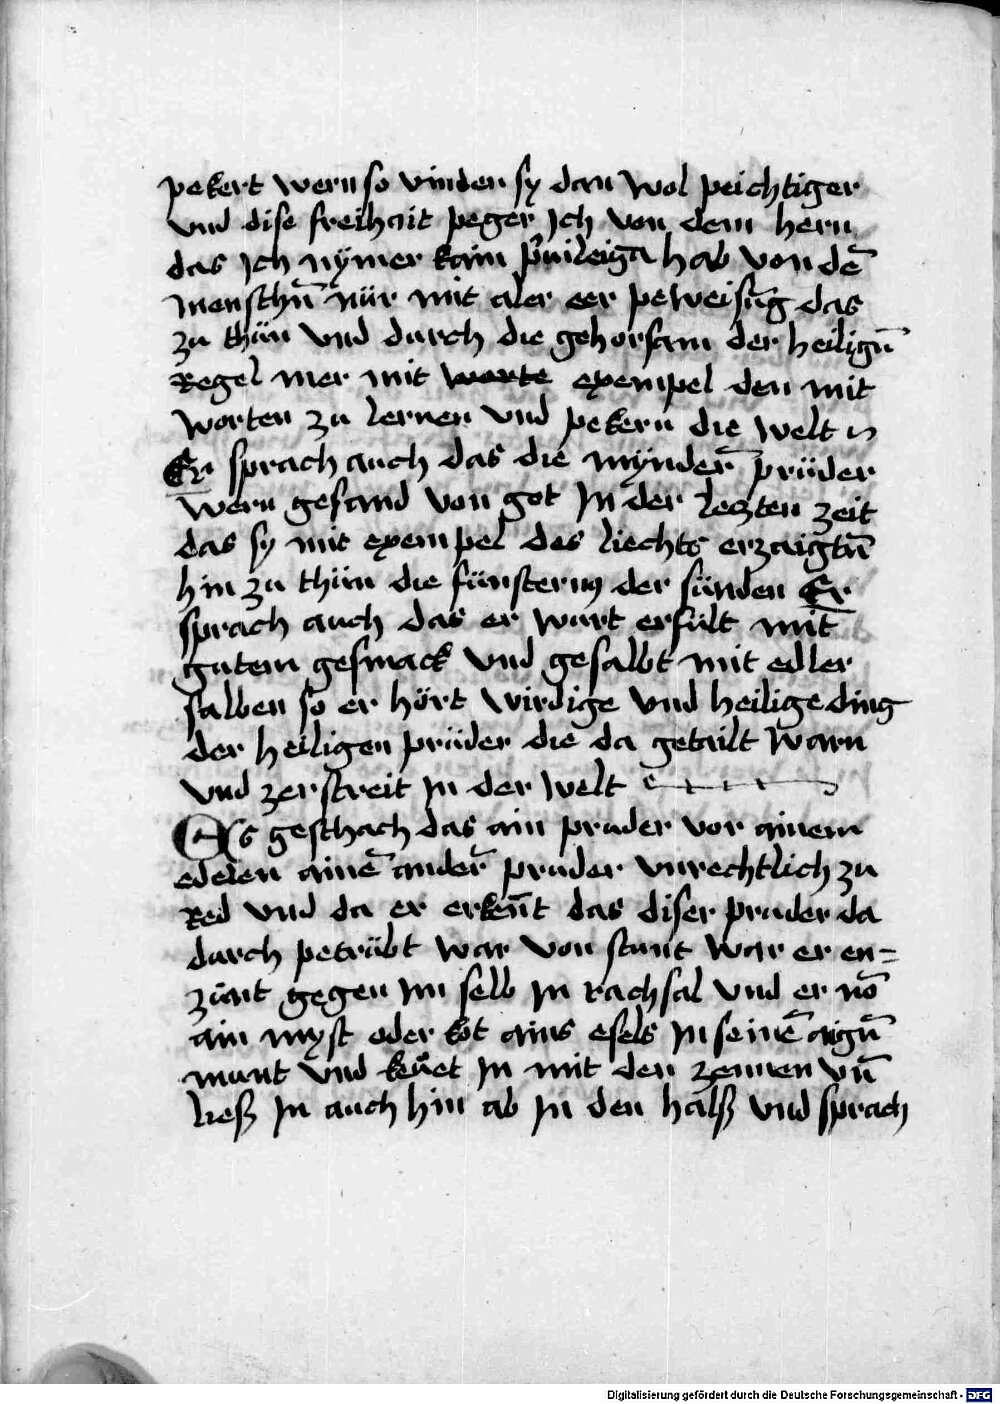 pekert wern so vinden sy dan wol peichtiger
vnd dise freihait peger Ich von dem hern
das Ich nymer kain priuileigia hab von dē
menschn̄ nür mit aler eer peweisūg das
zu thün vnd durch die gehorsam der heilign̄
Regel mer mit exempel den mit
worten zu lernen vnd pekern die welt
Er sprach auch das die mynder̄ prüder
wern gesand von got In der leczten zeit
das sy mit exempel des liechts erzaigtn̄
hin zu thün die fünsternus der sünden Er
sprach auch das er wurt erfült mit
gutem gesmack vnd gesalbt mit edler
salben so er hört wirdige vnd heilige ding
der heiligen prüder die da getailt warn
vnd zerstreit In der welt
Es geschach das ain pruder vor ainem
edelen ainē ander̄ pruder vnrechtlich zu
Red vnd da er erken̄t das diser pruder da
durch petrübt war von stunt war er en=
zünt gegen Im selb In rachsal vnd er nō
ain myst oder kot ains esels In seinē aign̄
munt vnd keüet In mit den zennen vn̄
ließ In auch hin ab In den halß vnd sprach
Digitalisierung gefördert durch die Deutsche Forschungsgemeinschaft - DFG